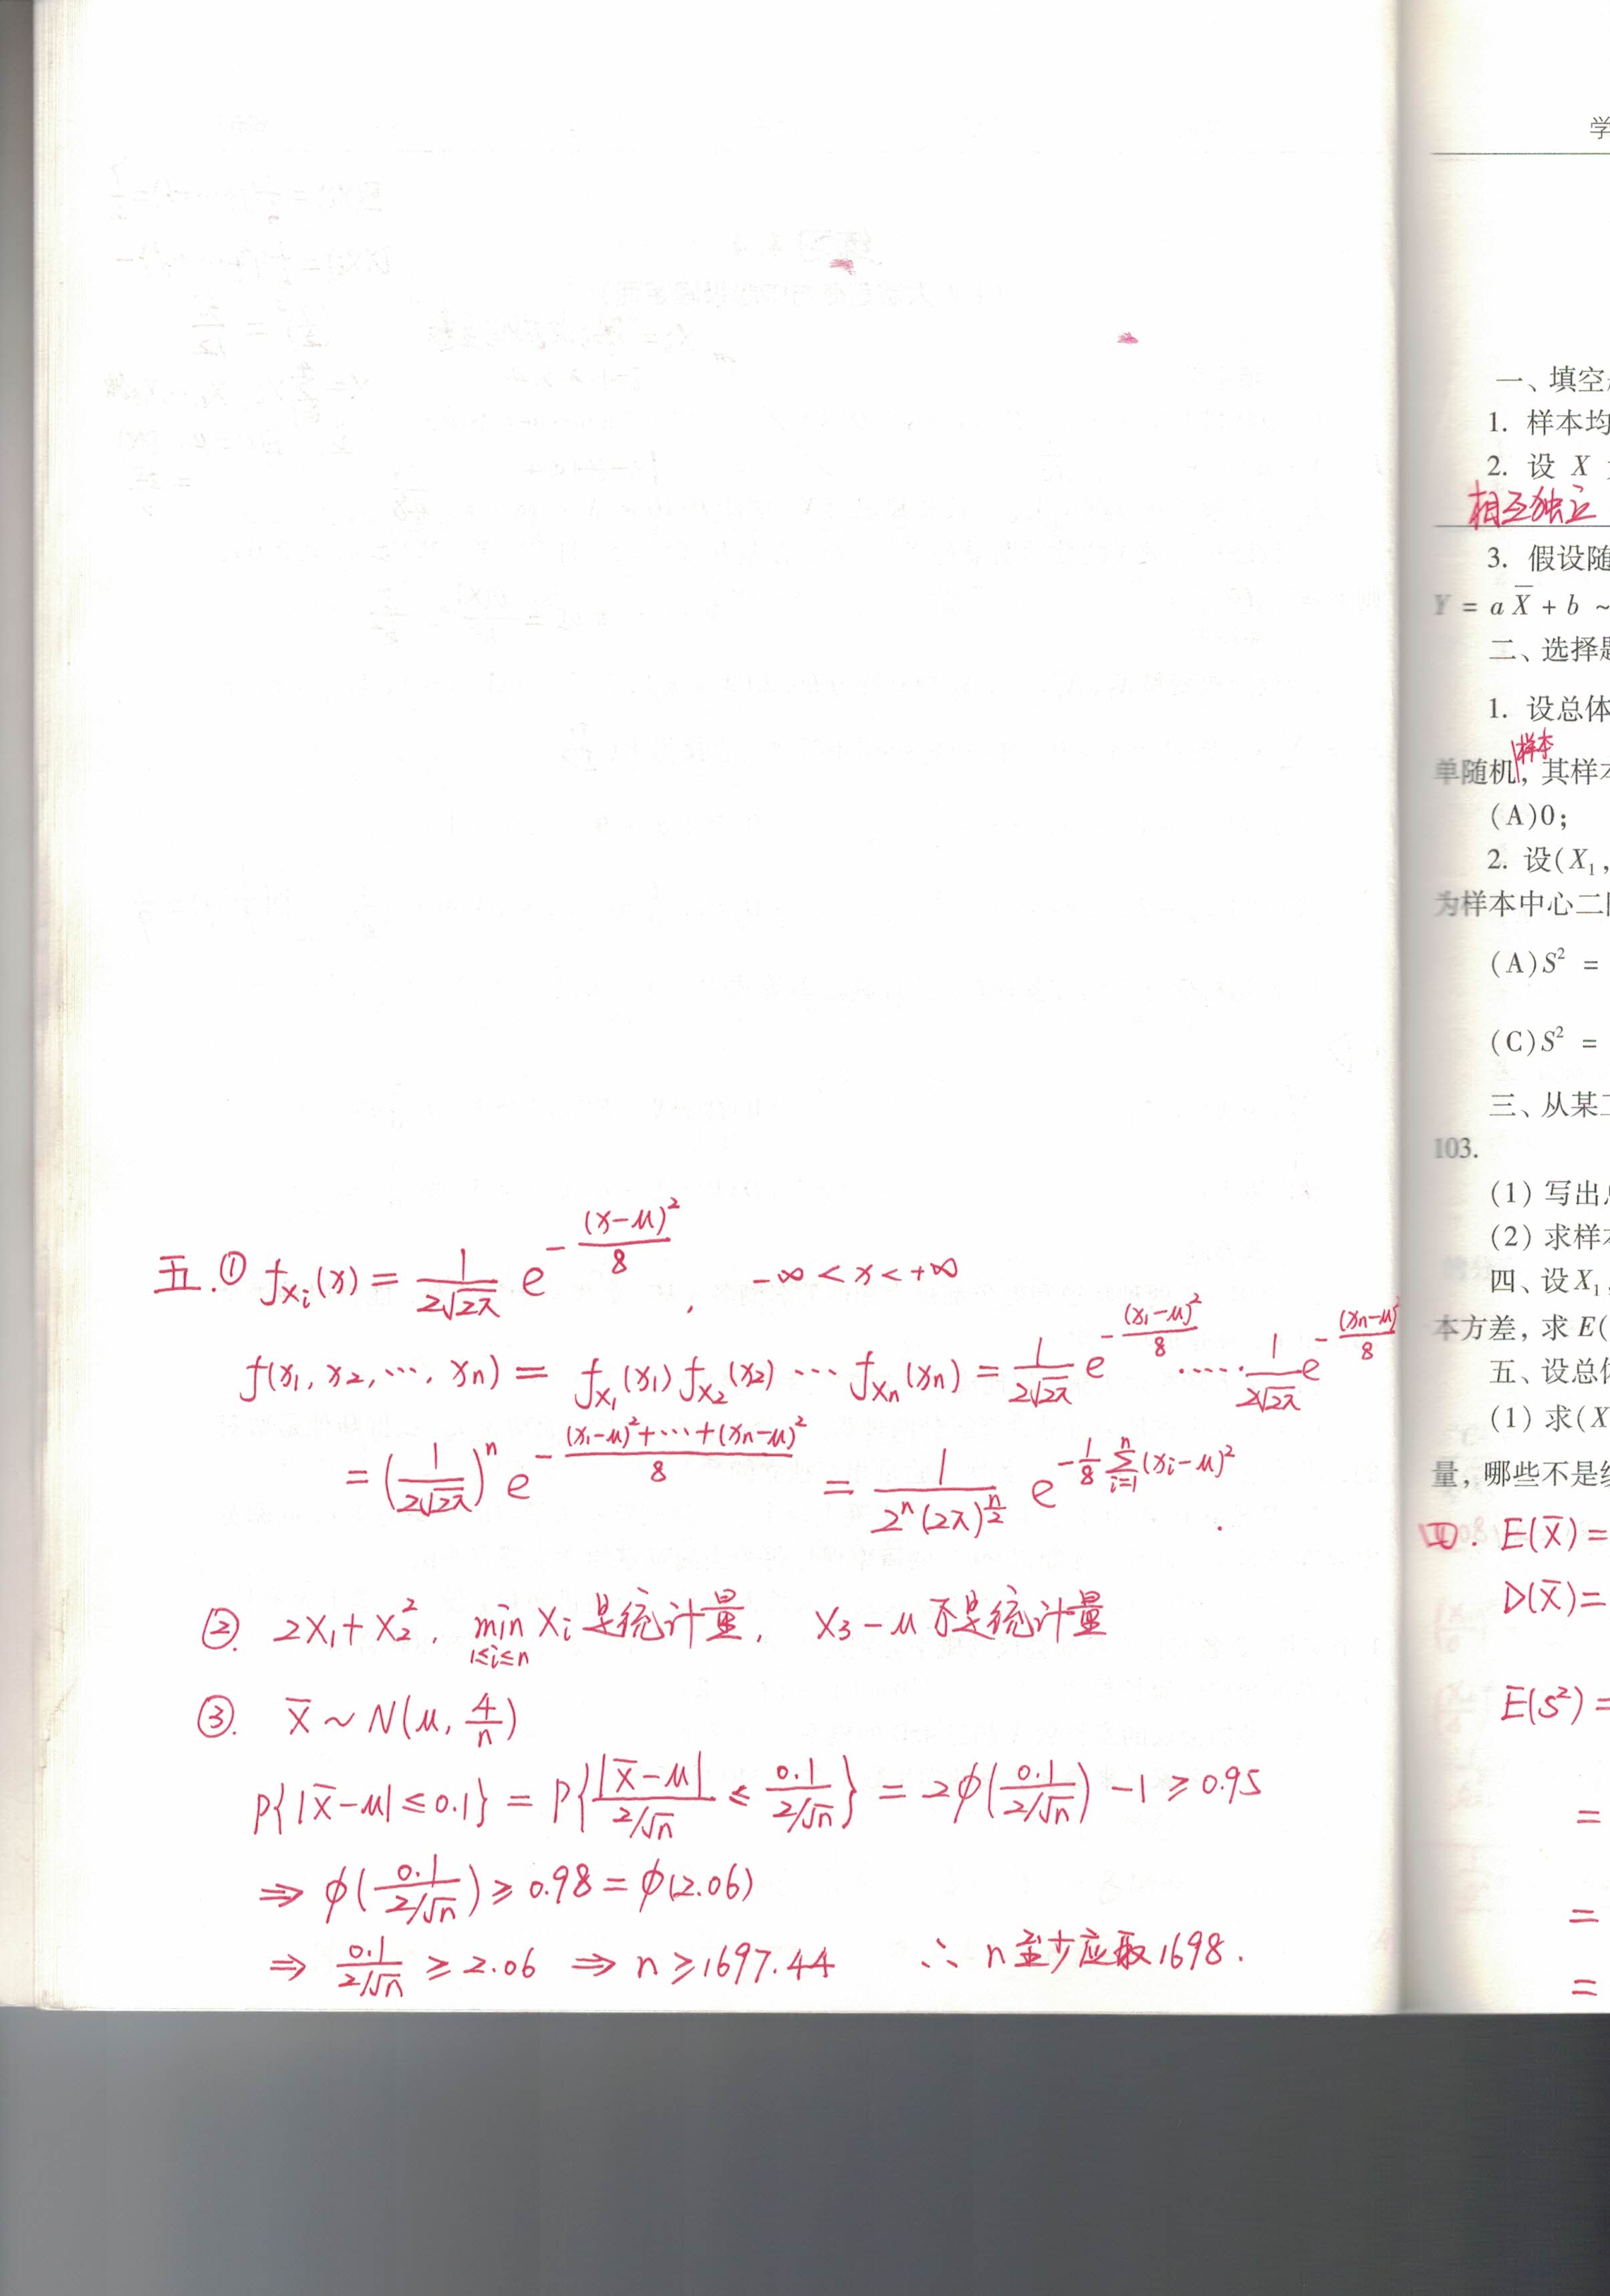 五.① f_{X_i}(x) = \frac{1}{2\sqrt{2π}} e^{-\frac{(x-μ)^2}{8}}, -∞ < x < +∞
f(x_1, x_2, ⋯, x_n) = f_{X_1}(x_1) f_{X_2}(x_2) ⋯ f_{X_n}(x_n) = \frac{1}{2\sqrt{2π}} e^{-\frac{(x_1-μ)^2}{8}} ⋯⋯ \frac{1}{2\sqrt{2π}} e^{-\frac{(x_n-μ)^2}{8}}
= (\frac{1}{2\sqrt{2π}})^n e^{-\frac{(x_1-μ)^2+⋯+(x_n-μ)^2}{8}} = \frac{1}{2^n(2π)^{\frac{n}{2}}} e^{-\frac{1}{8}\sum_{i=1}^{n}(x_i-μ)^2}.
②. 2X_1+X_2^2, \min_{1≤i≤n} X_i 是统计量, X_3-μ 不是统计量
③. \overline{X} ~ N(μ, \frac{4}{n})
P{|\overline{X}-μ| ≤ 0.1} = P{\frac{|\overline{X}-μ|}{2/\sqrt{n}} ≤ \frac{0.1}{2/\sqrt{n}}} = 2φ(\frac{0.1}{2/\sqrt{n}}) -1 ≥ 0.95
⇒ φ(\frac{0.1}{2/\sqrt{n}}) ≥ 0.98 = φ(2.06)
⇒ \frac{0.1}{2/\sqrt{n}} ≥ 2.06 ⇒ n ≥ 1697.44 ∴ n至少应取1698.
学
一、填空
1. 样本均
2. 设 X
相互独立
3. 假设随
Y = a\overline{X} + b ~
二、选择题
1. 设总体
样本
单随机, 其样本
(A)0;
2. 设(X_1,
为样本中心二阶
(A)S^2 =
(C)S^2 =
三、从某
103.
(1) 写出
(2) 求样本
四、设X_1,
本方差, 求E(
五、设总体
(1) 求(X
量, 哪些不是统
四. E(\overline{X}) =
D(\overline{X}) =
E(S^2) =
=
=
=